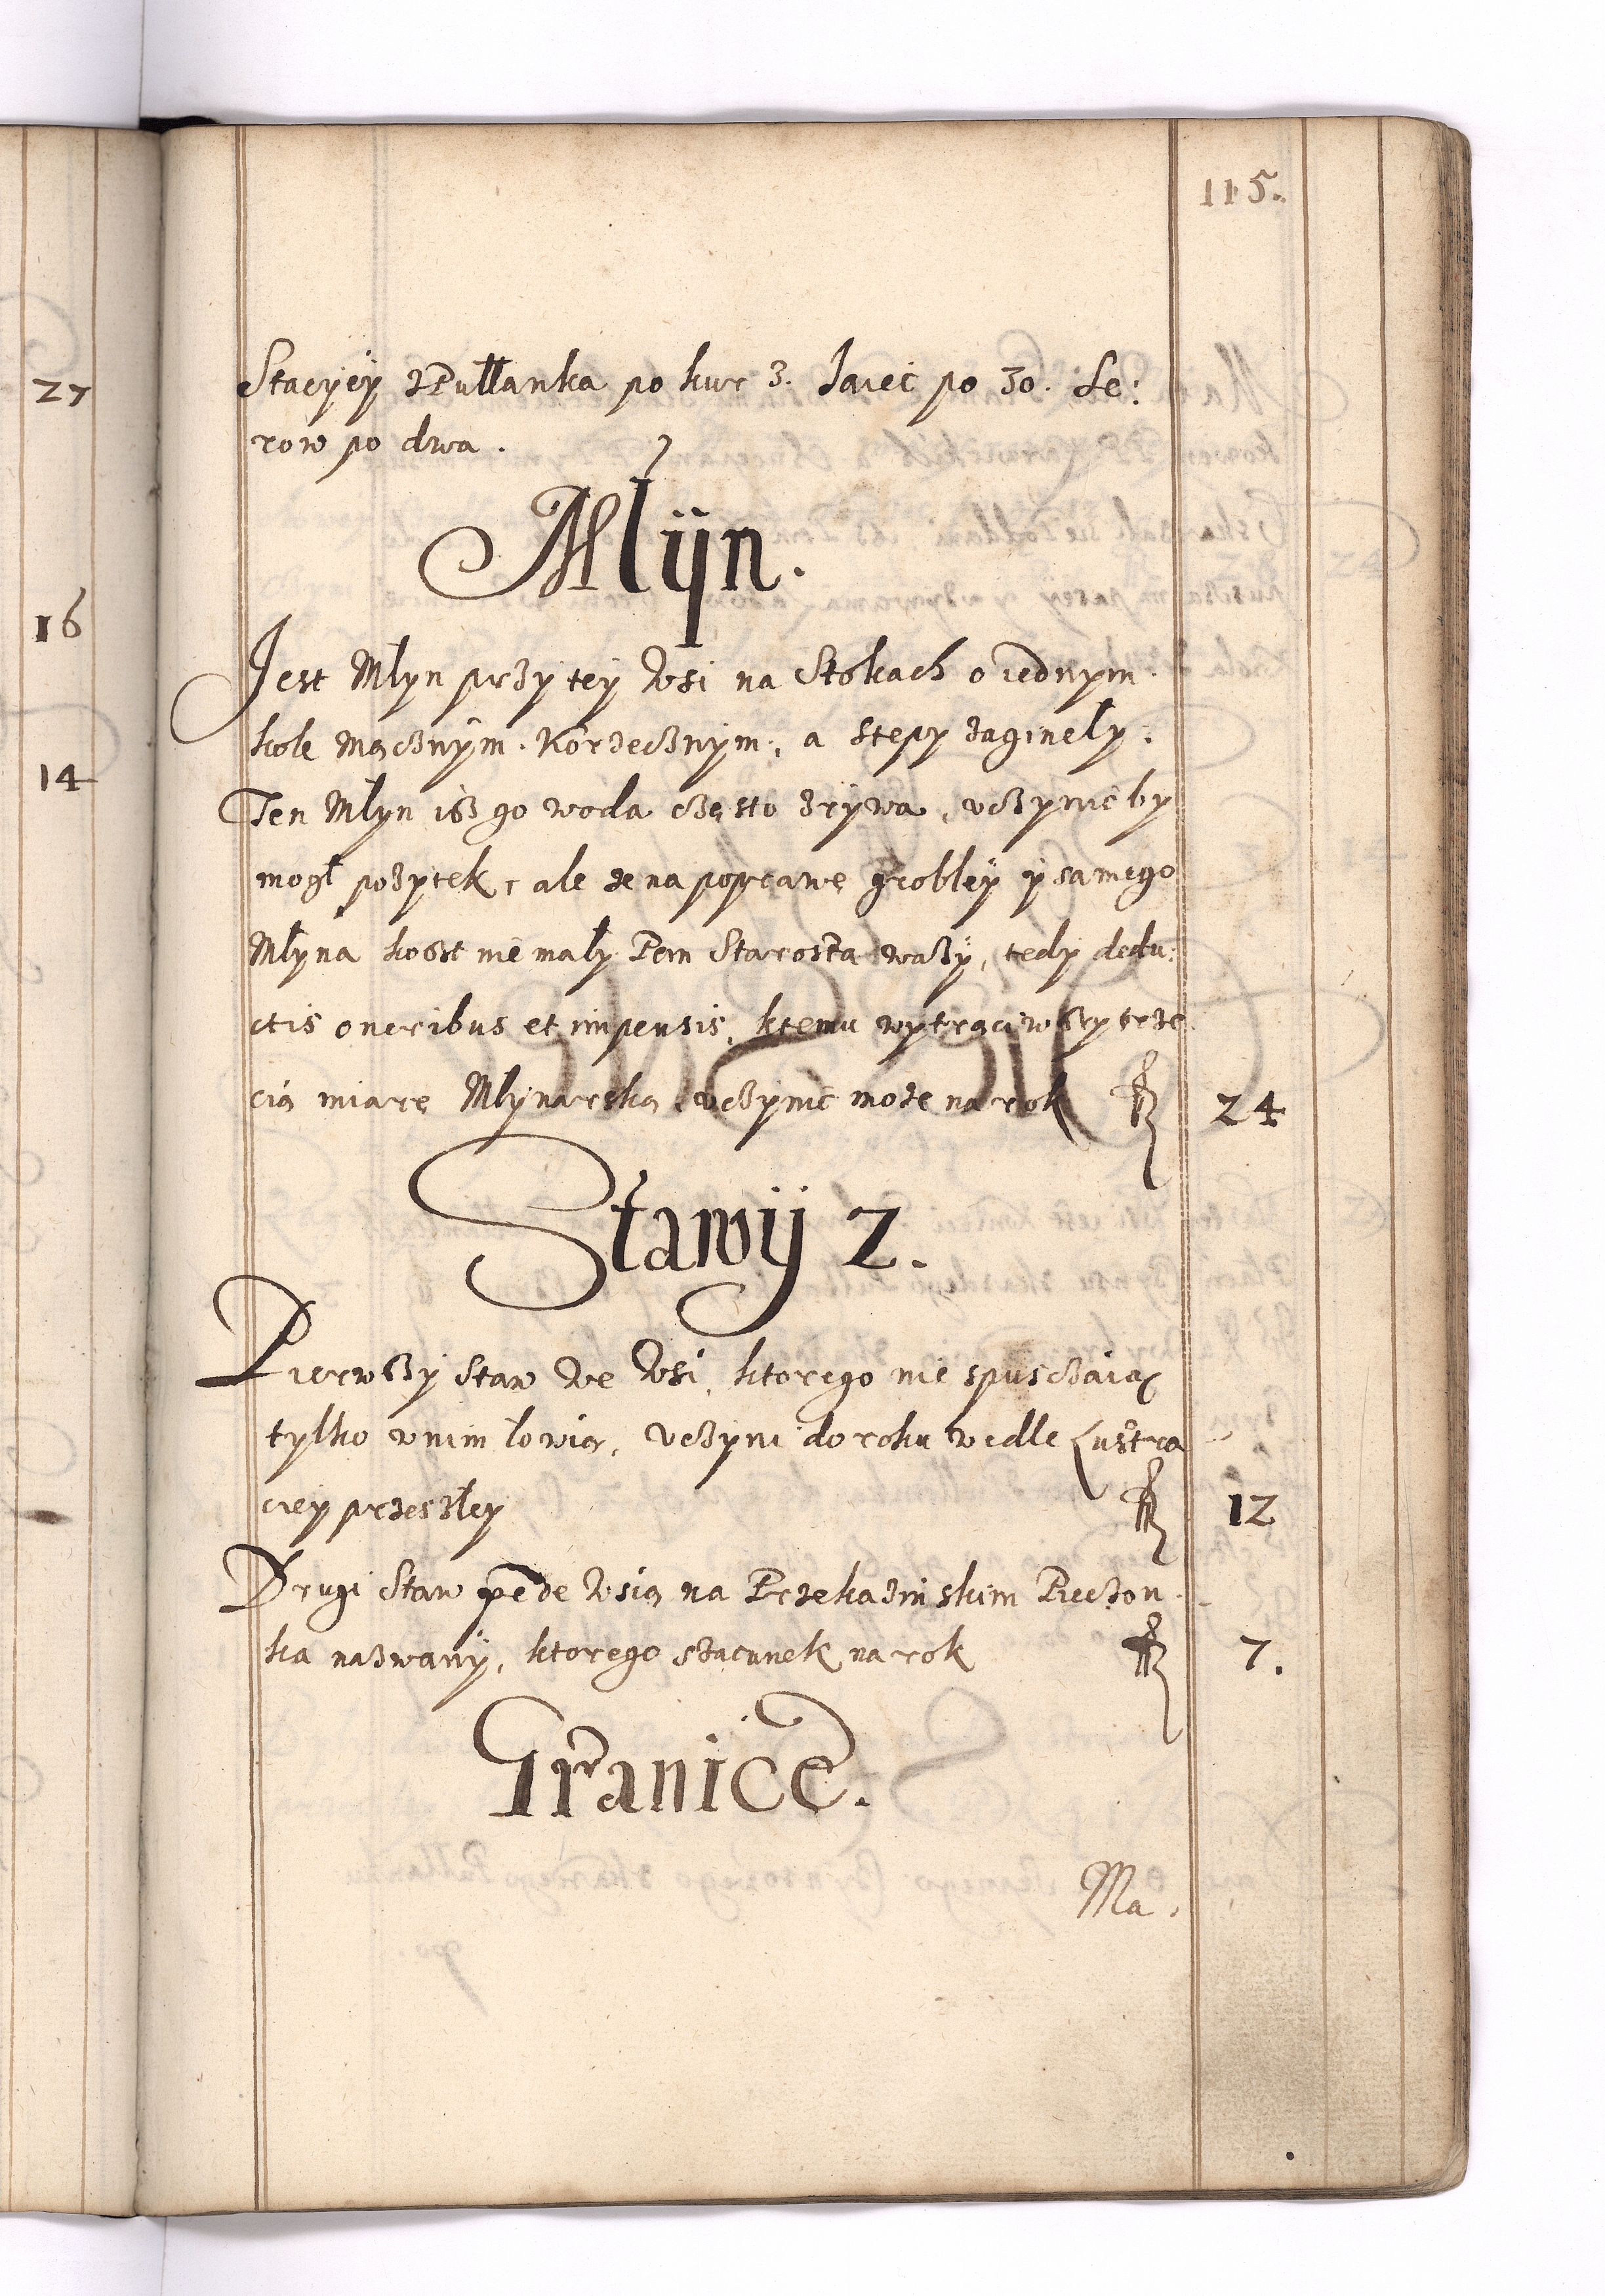 115.
27
Stacyey z Pułłanka po kur 3. Jaiec po 30. Se:
row po dwa.
Młÿn.
16
Jest Młyn przy tey Wsi na Stokach o iednym
kole mącznÿm. Korzecznÿm, a stepy zaginęły.
14
Ten Młyn isz go woda często zrÿwa, uczynic by
mogł pozytek, ale ze na poprawę grobley y samego
Młyna koszt nie mały Pan Starosta wazÿ, tedy dedu:
ctis oneribus et impensis, ktemu wytrąciwszy trze
cią miarę Młynarską uczynic moze na rok fl 24
Stawÿ 2.
Pierwszÿ Staw We Wsi, ktorego nie spusczaią
tylko w nim łowią, Uczyni do roku wedle Lustra
ciey przeszłey fl 12
Drugi Staw pode Wsią na Przekazinskim Pieczon
ka nazwanÿ, ktorego szacunek na rok fl 7.
Granice.
Ma.